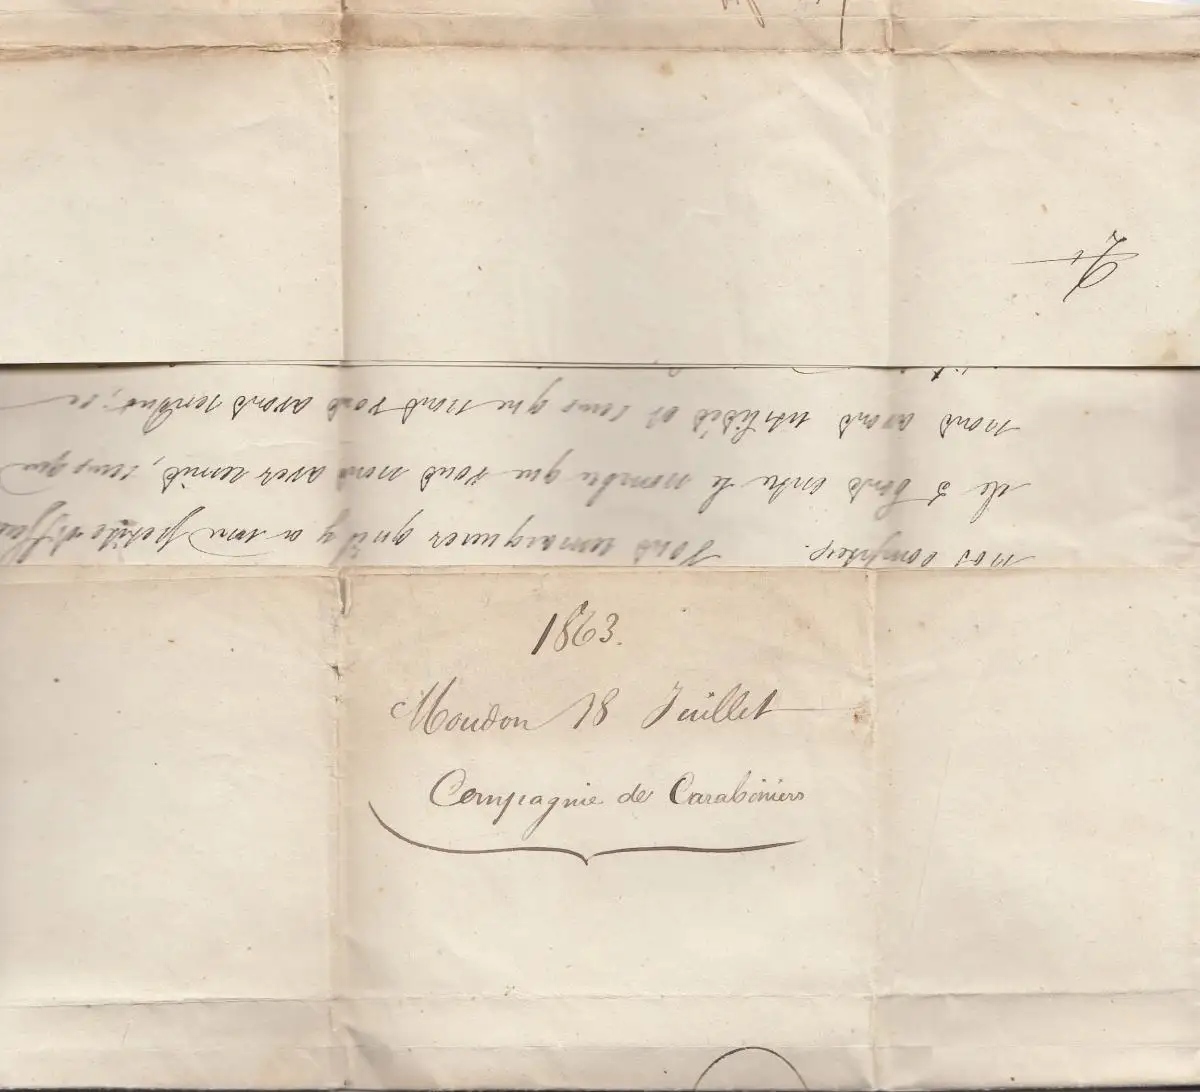 nos comptes. Vous remarquerez qu'il y a une petite
de 5 bons entre le nombre que vous nous avez remis, ceux que
nous avons utilisés et ceux que nous vous avons rendus; ce
1863.
Moudon 18 Juillet
Compagnie de Carabiniers